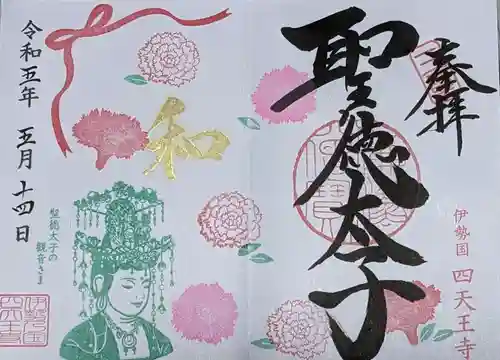 奉拝
聖徳太子
伊勢国 四天王寺
和
聖徳太子の
観音さま
令和五年 五月 十四日